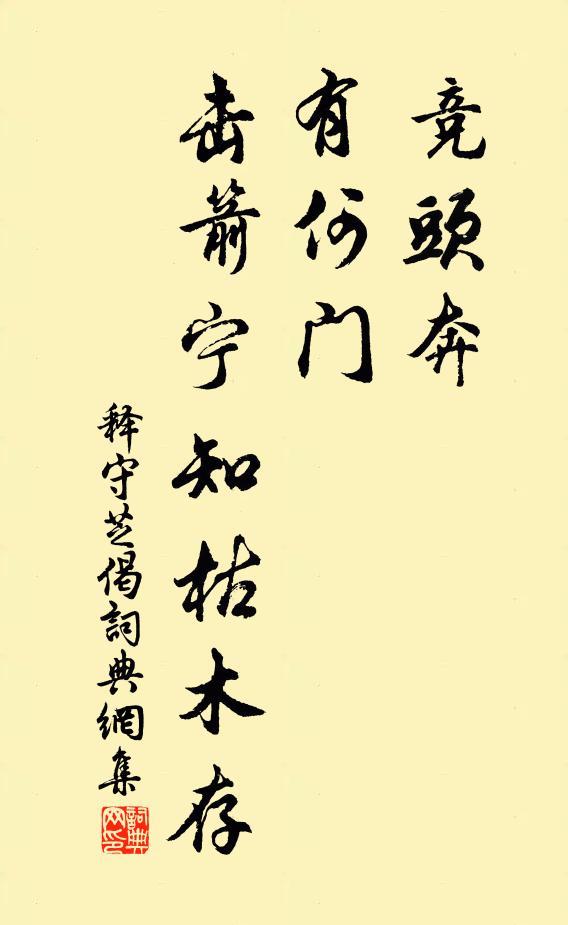 竞頭奔
有何門
击箭宁知枯木存
释守芝偈詞典網集
詞典网印